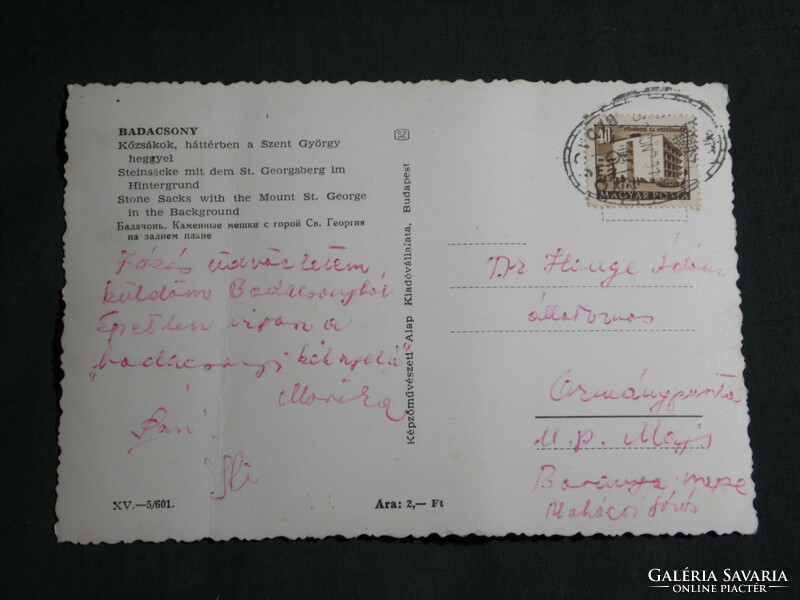 BADACSONY
Kőzsákok, háttérben a Szent György
heggyel
Steinsäcke mit dem St. Georgsberg im
Hintergrund
Stone Sacks with the Mount St. George
in the Background
Балачонь. Каменные мешки с горой Св. Георгия
на заднем плане
küldöm Badacsonyból
Épetlen a
"badacsonyi kéknyelű"
XV.—5/601.
Ara: 2,— Ft
Képzőművészeti Alap Kiadóvállalata, Budapest
SZ
MAGYAR POSTA
Dr Ádám
állatorvos
Ormánypuszta
u. p. Majs
Baranya megye
GALÉRIA SAVARIA
ONLINE PIACTÉR